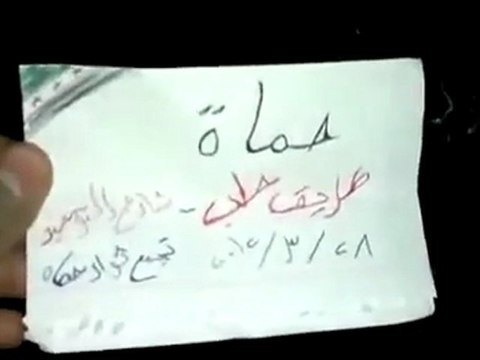 حماة
طريق حلب - شارع التوحيد
٢٨ / ٣ / ٢٠١٢ تجمع ثوار حماه